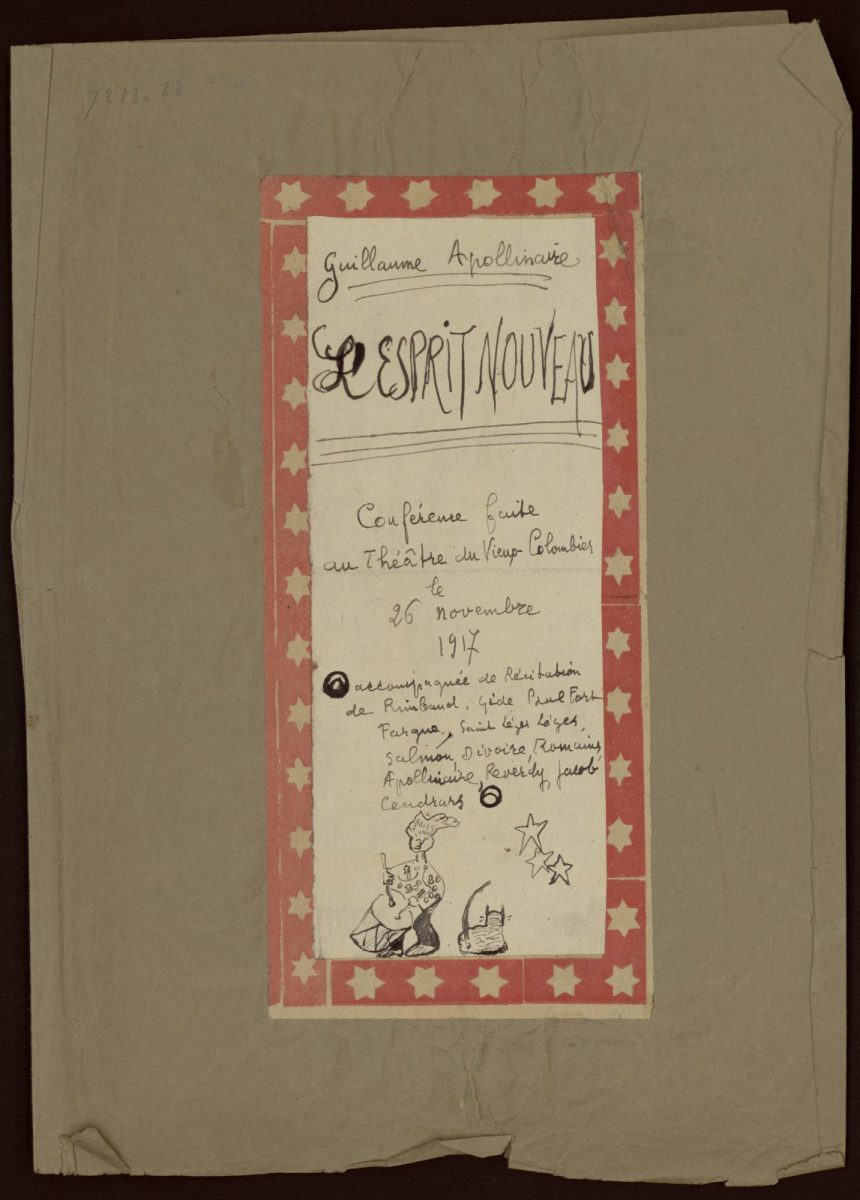 7213-28
Guillaume Apollinaire
L'ESPRIT NOUVEAU
Conférence faite
au Théâtre du Vieux-Colombier
le
26 novembre
1917
accompagnée de Récitation
de Rimbaud, Gide Paul Fort
Fargue, Saint Léger Léger,
Salmon, Divoire, Romains,
Apollinaire, Reverdy, Jacob
Cendrars